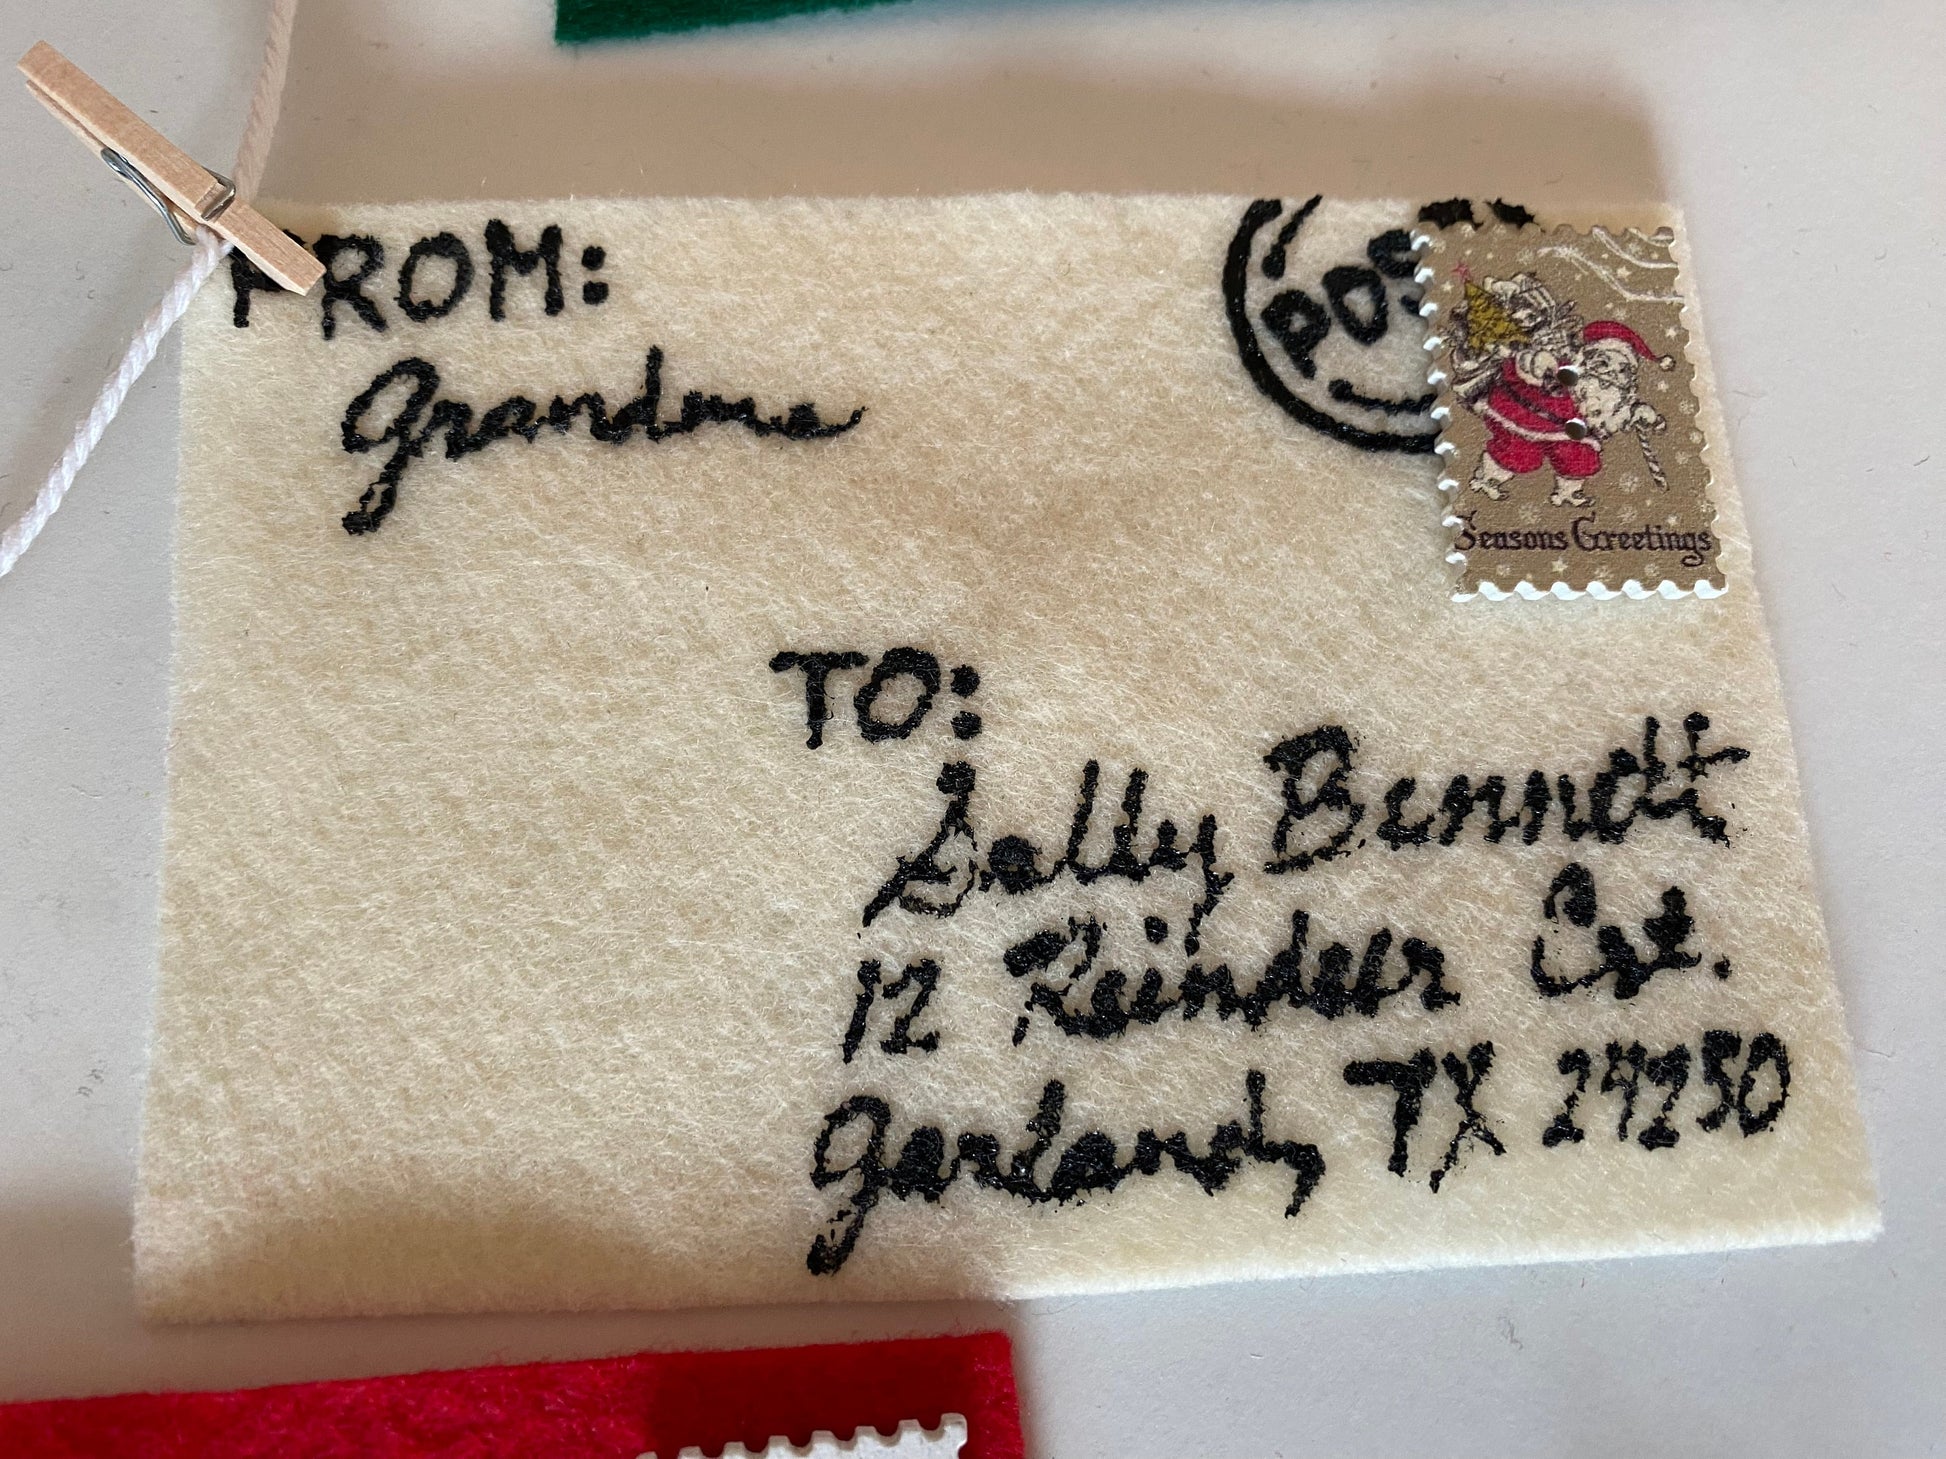 FROM:
Grandma
POS
Seasons Greetings
TO:
Sally Bennett
12 Reindeer
Garland, TX